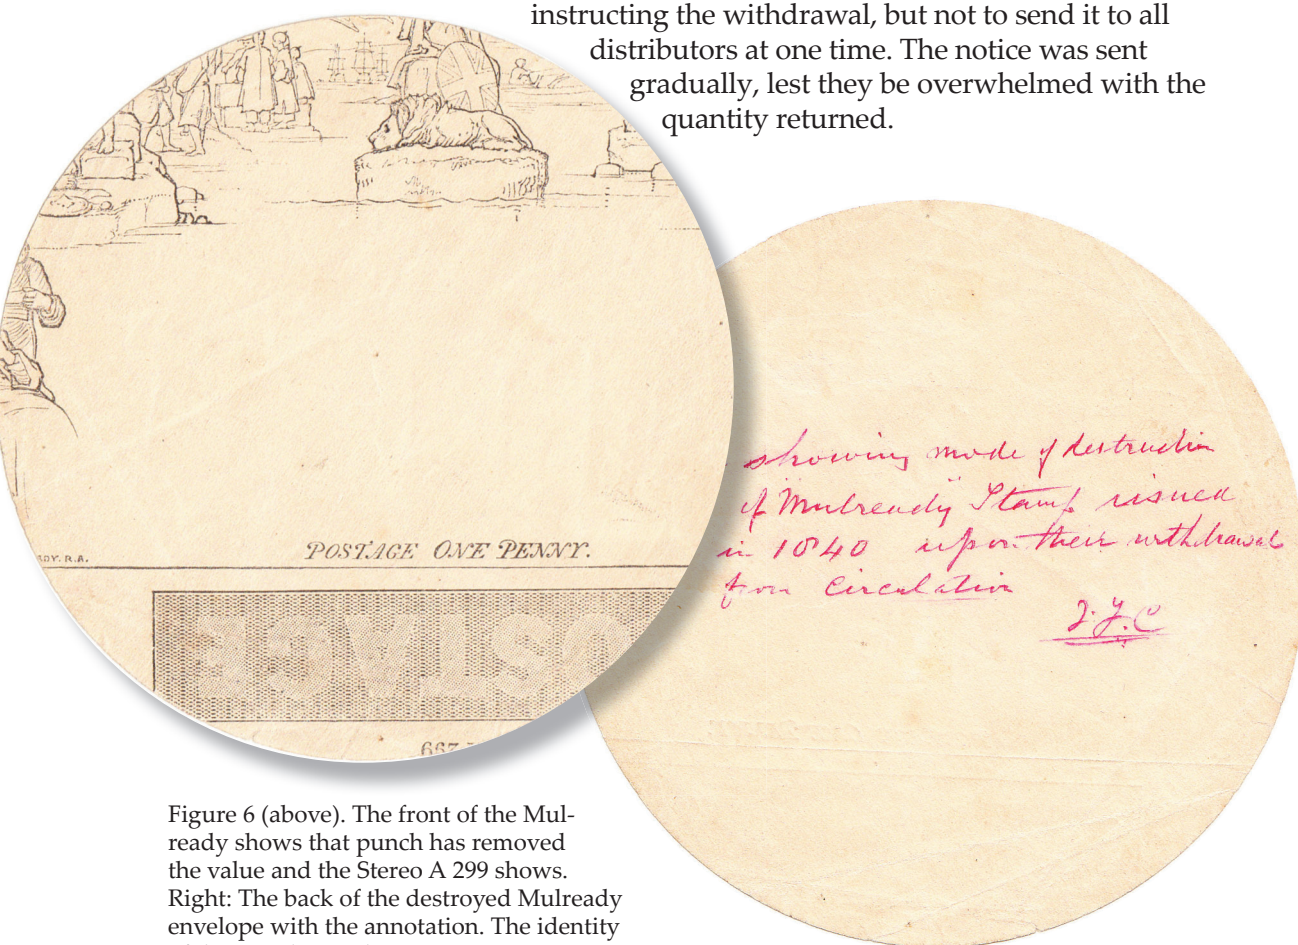 instructing the withdrawal, but not to send it to all
distributors at one time. The notice was sent
gradually, lest they be overwhelmed with the
quantity returned.
DY. R.A.
POSTAGE ONE PENNY.
showing mode of destruction
of Mulready Stamp issued
in 1840 upon their withdrawal
from Circulation
Figure 6 (above). The front of the Mul-
ready shows that punch has removed
the value and the Stereo A 299 shows.
Right: The back of the destroyed Mulready
envelope with the annotation. The identity